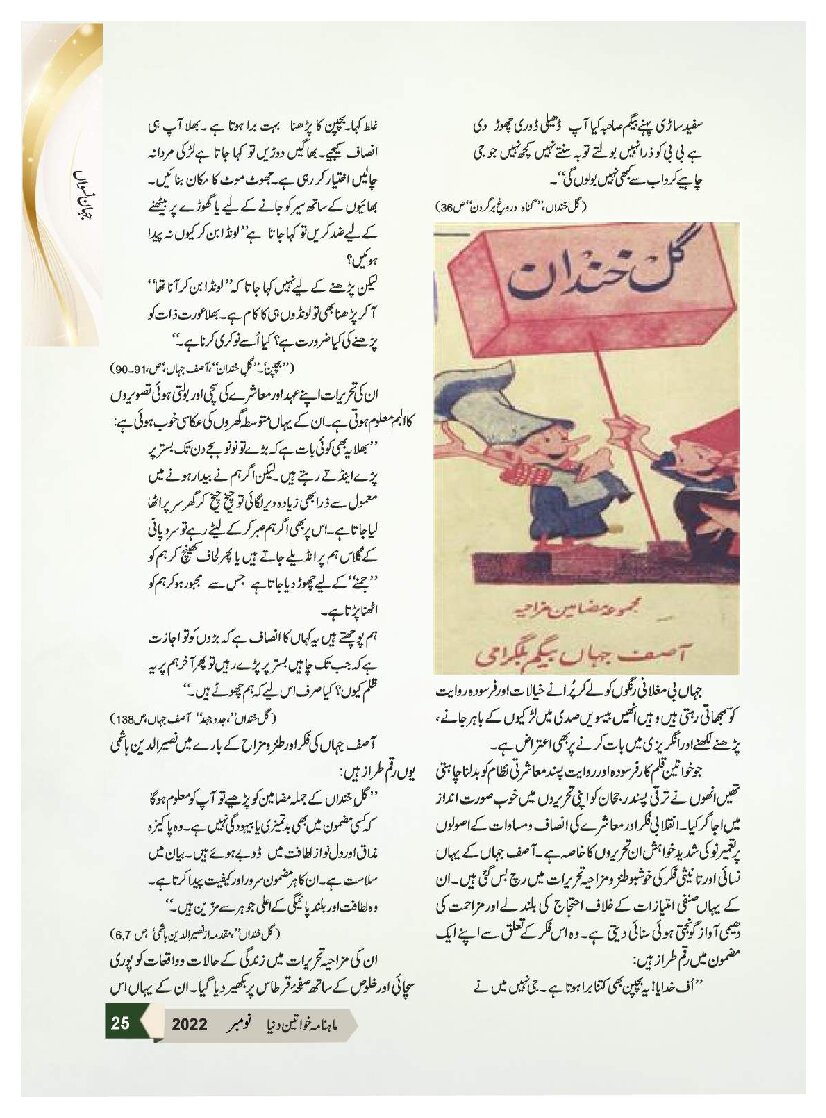 جہان نسواں
سفید ساڑی پہنے بیگم صاحبہ کیا آپ ڈھیلی ڈوری چھوڑ دی
ہے بی بی کو ذرا نہیں بولتے توبہ سنتے نہیں کچھ نہیں جو جی
چاہیے کرو اب سے کبھی نہیں بولوں گی“۔
(گل خنداں، ”گناہ دروغ برگردن“ ص36)
گل خندان
مجموعۂ مضامین مزاحیہ
آصف جہاں بیگم بلگرامی
جہاں بی مغلانی رنگوں کو لے کر پُرانے خیالات اور فرسودہ روایت
کو سمجھاتی رہتی ہیں وہیں انھیں بیسویں صدی میں لڑکیوں کے باہر جانے،
پڑھنے لکھنے اور انگریزی میں بات کرنے پر بھی اعتراض ہے۔
جو خواتین قلم کار فرسودہ اور روایت پسند معاشرتی نظام کو بدلنا چاہتی
تھیں انھوں نے ترقی پسند رجحان کو اپنی تحریروں میں خوب صورت انداز
میں اجاگر کیا۔ انقلابی فکر اور معاشرے کی انصاف و مساوات کے اصولوں
پر تعمیر نو کی شدید خواہش ان تحریروں کا خاصہ ہے۔ آصف جہاں کے یہاں
نسائی اور تانیثی فکر کی خوشبو طنز و مزاحیہ تحریرات میں رچ بس گئی ہیں۔ ان
کے یہاں صنفی امتیازات کے خلاف احتجاج کی بلند لے اور مزاحمت کی
دھیمی آواز گونجتی ہوئی سنائی دیتی ہے۔ وہ اس فکر کے تعلق سے اپنے ایک
مضمون میں رقم طراز ہیں:
”اُف خدایا! یہ بچپن بھی کتنا برا ہوتا ہے۔ جی نہیں میں نے
غلط کہا۔ بچپن کا پڑھنا بہت برا ہوتا ہے۔ بھلا آپ ہی
انصاف کیجیے۔ بھاگیں دوڑیں تو کہا جاتا ہے لڑکی مردانہ
چالیں اختیار کر رہی ہے۔ جھوٹ موٹ کا مکان بنائیں۔
بھائیوں کے ساتھ سیر کو جانے کے لیے یا گھوڑے پر بیٹھنے
کے لیے ضد کریں تو کہا جاتا ہے ”لونڈا بن کر کیوں نہ پیدا
ہوئیں؟
لیکن پڑھنے کے لیے نہیں کہا جاتا کہ ”لونڈا بن کر آنا تھا“
آکر پڑھنا بھی تو لونڈوں ہی کا کام ہے۔ بھلا عورت ذات کو
پڑھنے کی کیا ضرورت ہے؟ کیا اُسے نوکری کرنا ہے۔“
(”بچپن“۔ ”گل خنداں“، آصف جہاں،ص، 91-90)
ان کی تحریرات اپنے عہد اور معاشرے کی سچی اور بولتی ہوئی تصویروں
کا البم معلوم ہوتی ہے۔ ان کے یہاں متوسط گھروں کی عکاسی خوب ہوئی ہے:
”بھلا یہ بھی کوئی بات ہے کہ بڑے تو نو نو بجے دن تک بستر پر
پڑے اینڈتے رہتے ہیں۔ لیکن اگر ہم نے بیدار ہونے میں
معمول سے ذرا بھی زیادہ دیر لگائی تو چیخ چیخ کر گھر سر پر اٹھا
لیا جاتا ہے۔ اس پر بھی اگر ہم صبر کر کے لیٹے رہے تو سرد پانی
کے گلاس ہم پر انڈیلے جاتے ہیں یا پھر لحاف کھینچ کر ہم کو
”جمنے“ کے لیے چھوڑ دیا جاتا ہے جس سے مجبور ہو کر ہم کو
اٹھنا پڑتا ہے۔
ہم پوچھتے ہیں یہ کہاں کا انصاف ہے کہ بڑوں کو تو اجازت
ہے کہ جب تک چاہیں بستر پر پڑے رہیں تو پھر آخر ہم پر یہ
ظلم کیوں؟ کیا صرف اس لیے کہ ہم چھوٹے ہیں۔“
(گل خنداں“، جدوجہد“ آصف جہاں، ص 138)
آصف جہاں کی فکر اور طنز و مزاح کے بارے میں نصیر الدین ہاشمی
یوں رقم طراز ہیں:
”گل خنداں کے جملہ مضامین کو پڑھیے تو آپ کو معلوم ہوگا
کہ کسی مضمون میں بھی بدتمیزی یا بیہودگی نہیں ہے۔ وہ پاکیزہ
مذاق اور دل نواز لطافت میں ڈوبے ہوئے ہیں۔ بیان میں
سلاست ہے۔ ان کا ہر مضمون سرور اور کیفیت پیدا کرتا ہے۔
وہ لطافت اور بلند پائیگی کے اعلی جوہر سے مزین ہیں۔“
(گل خنداں“، مقدمہ از نصیر الدین ہاشمی، ص 6,7)
ان کی مزاحیہ تحریرات میں زندگی کے حالات و واقعات کو پوری
سچائی اور خلوص کے ساتھ صفحۂ قرطاس پر بکھیر دیا گیا۔ ان کے یہاں اس
ماہنامہ خواتین دنیا نومبر 2022 25